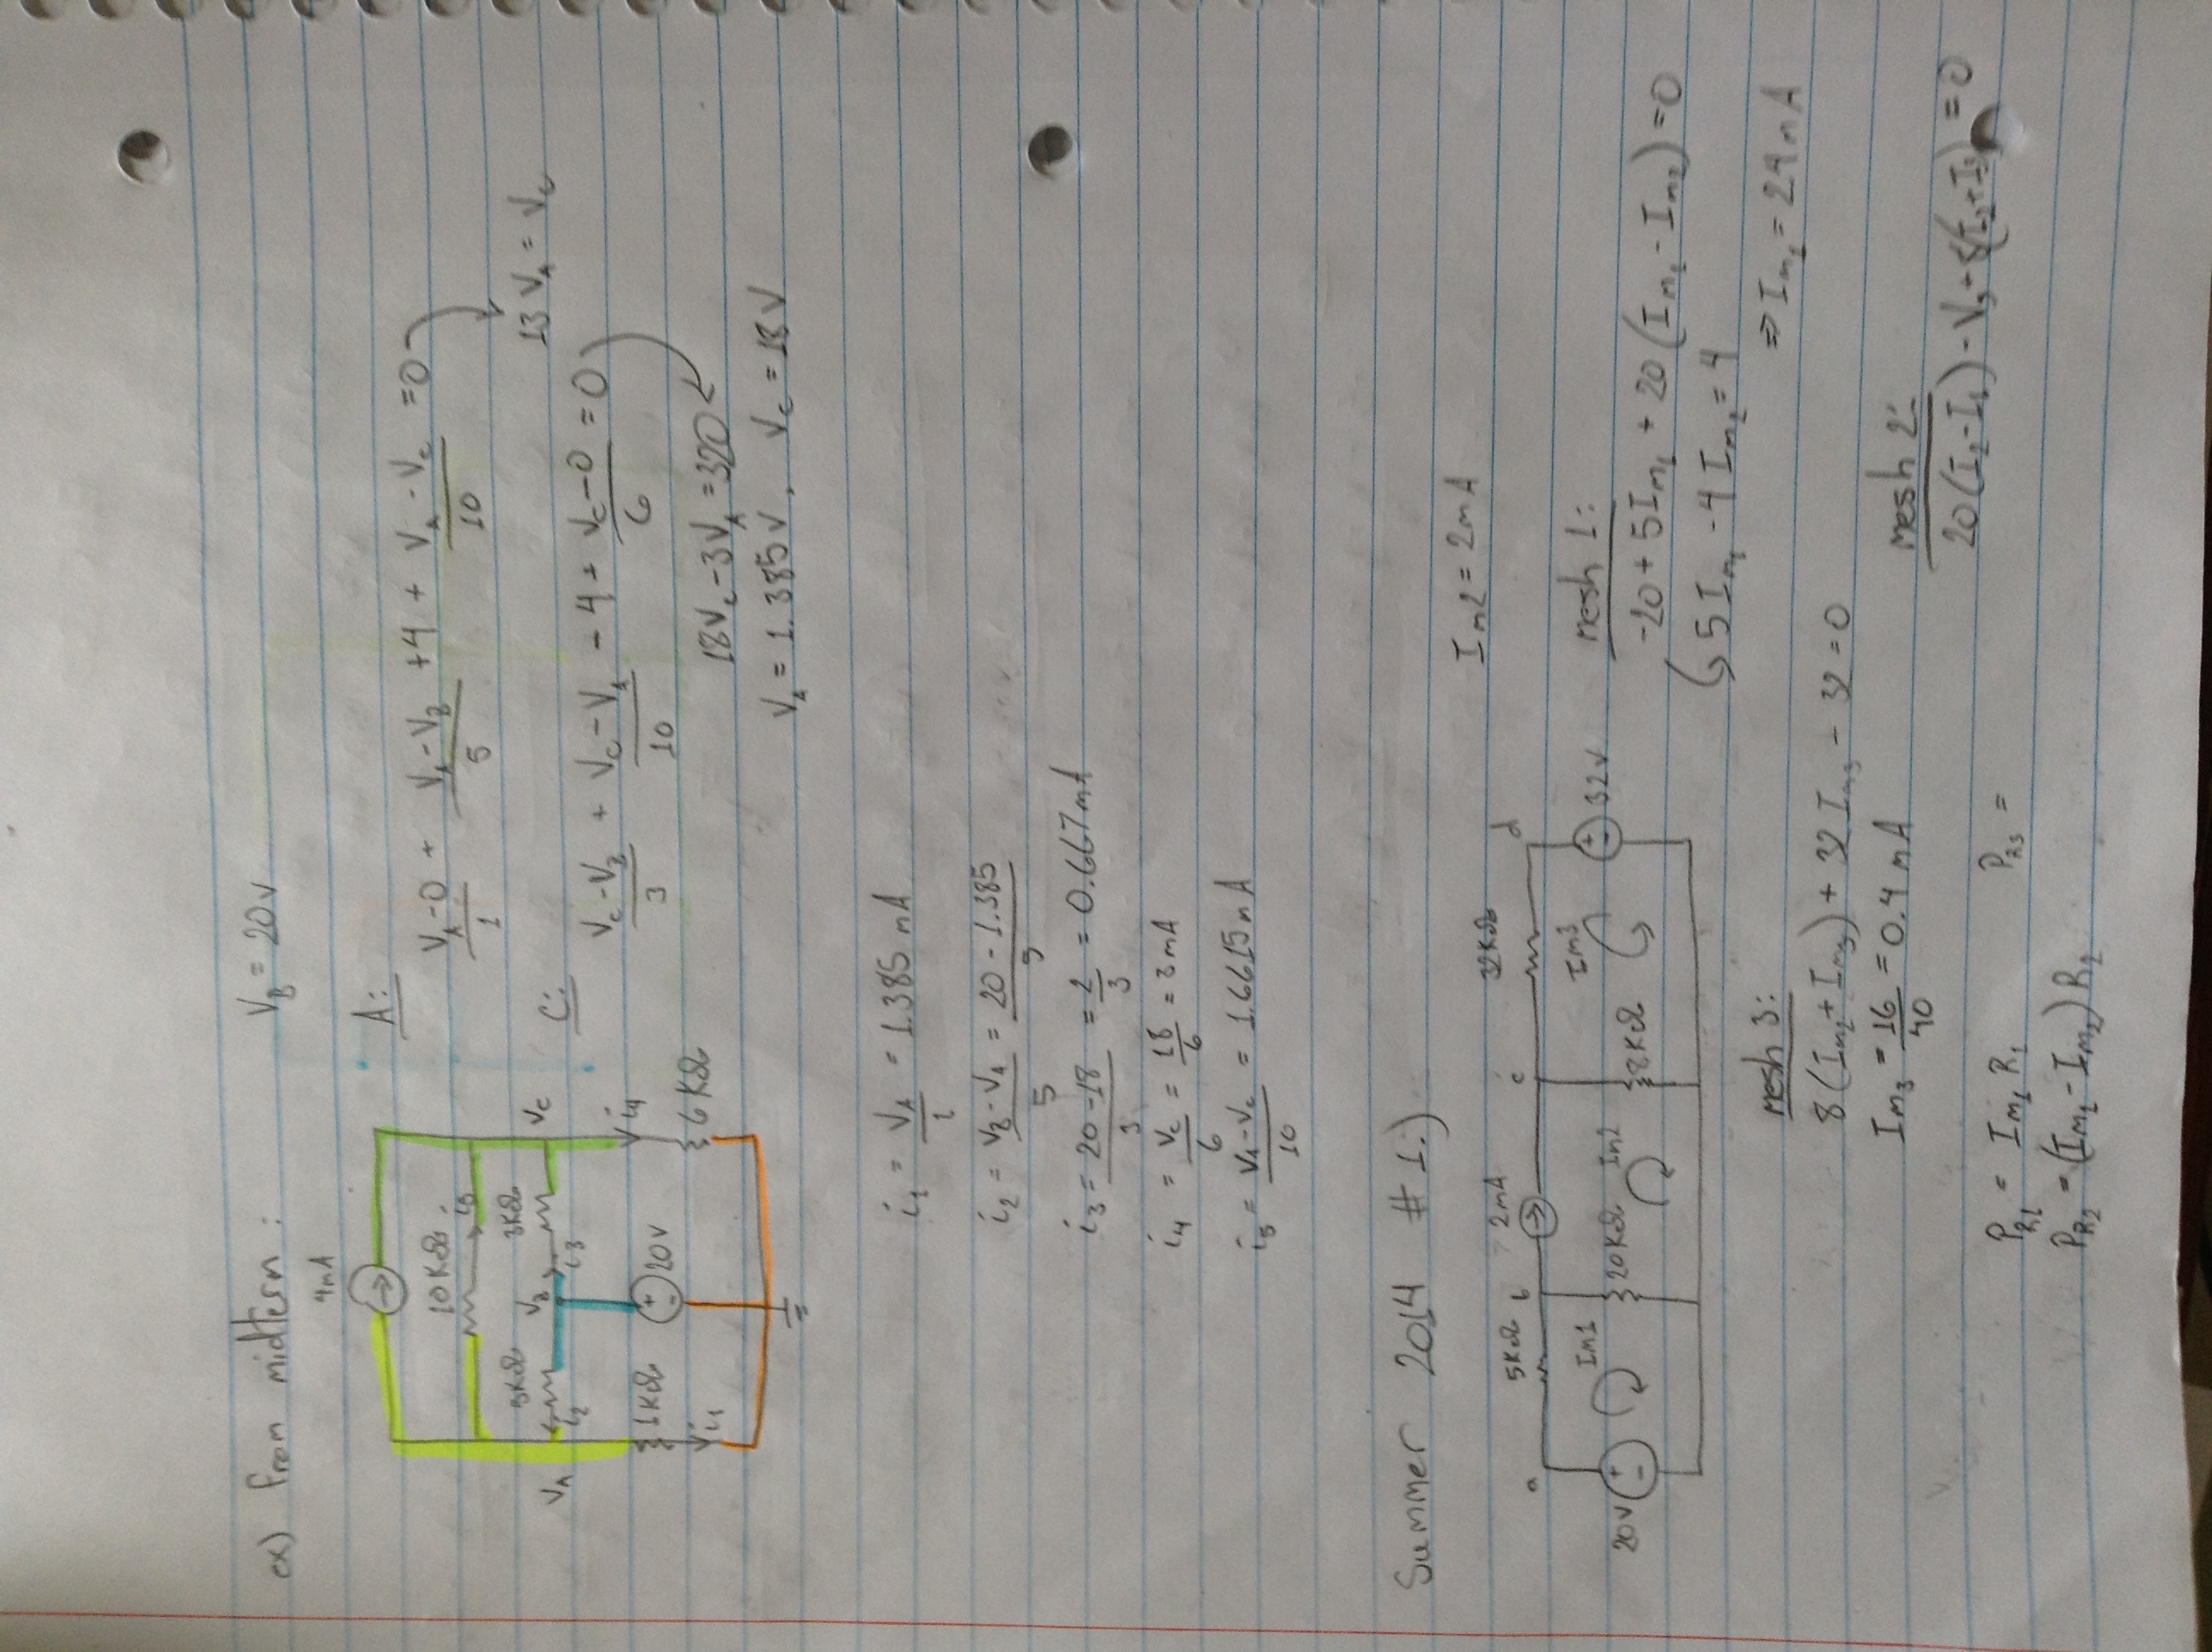 ex) from midterm :
V_B = 20v
4mA
10KΩ
i5
5KΩ V_B 3KΩ
V_A i2 i3 V_C
1KΩ 20v i4
i1 6KΩ
A:
(V_A-0)/1 + (V_A-V_B)/5 +4 + (V_A-V_C)/10 =0
13 V_A = V_C
C:
(V_C-V_B)/3 + (V_C-V_A)/10 - 4 + (V_C-0)/6 = 0
18V_C-3V_A=320
V_A = 1.385V, V_C = 18V
i1 = V_A/1 = 1.385 mA
i2 = (V_B-V_A)/5 = (20-1.385)/5
i3 = (20-18)/3 = 2/3 = 0.667mA
i4 = V_C/6 = 18/6 = 3mA
i5 = (V_A-V_C)/10 = 1.6615mA
Summer 2014 #1.)
I_m2 = 2mA
a 5KΩ b 2mA c 32KΩ d
20v Im1 20KΩ Im2 8KΩ Im3 32v
mesh 1:
-20+5I_m1 + 20(I_m1-I_m2)=0
5I_m1 -4I_m2 = 4
⇒ I_m1 = 2.4mA
mesh 3:
8(I_m2+I_m3) + 32I_m3 - 32 = 0
I_m3 = 16/40 = 0.4mA
mesh 2:
20(I_2-I_1) - V_s + 8(I_2+I_3) = 0
P_R1 = I_m1 R_1
P_R3 =
P_R2 = (I_m1-I_m2)R_2